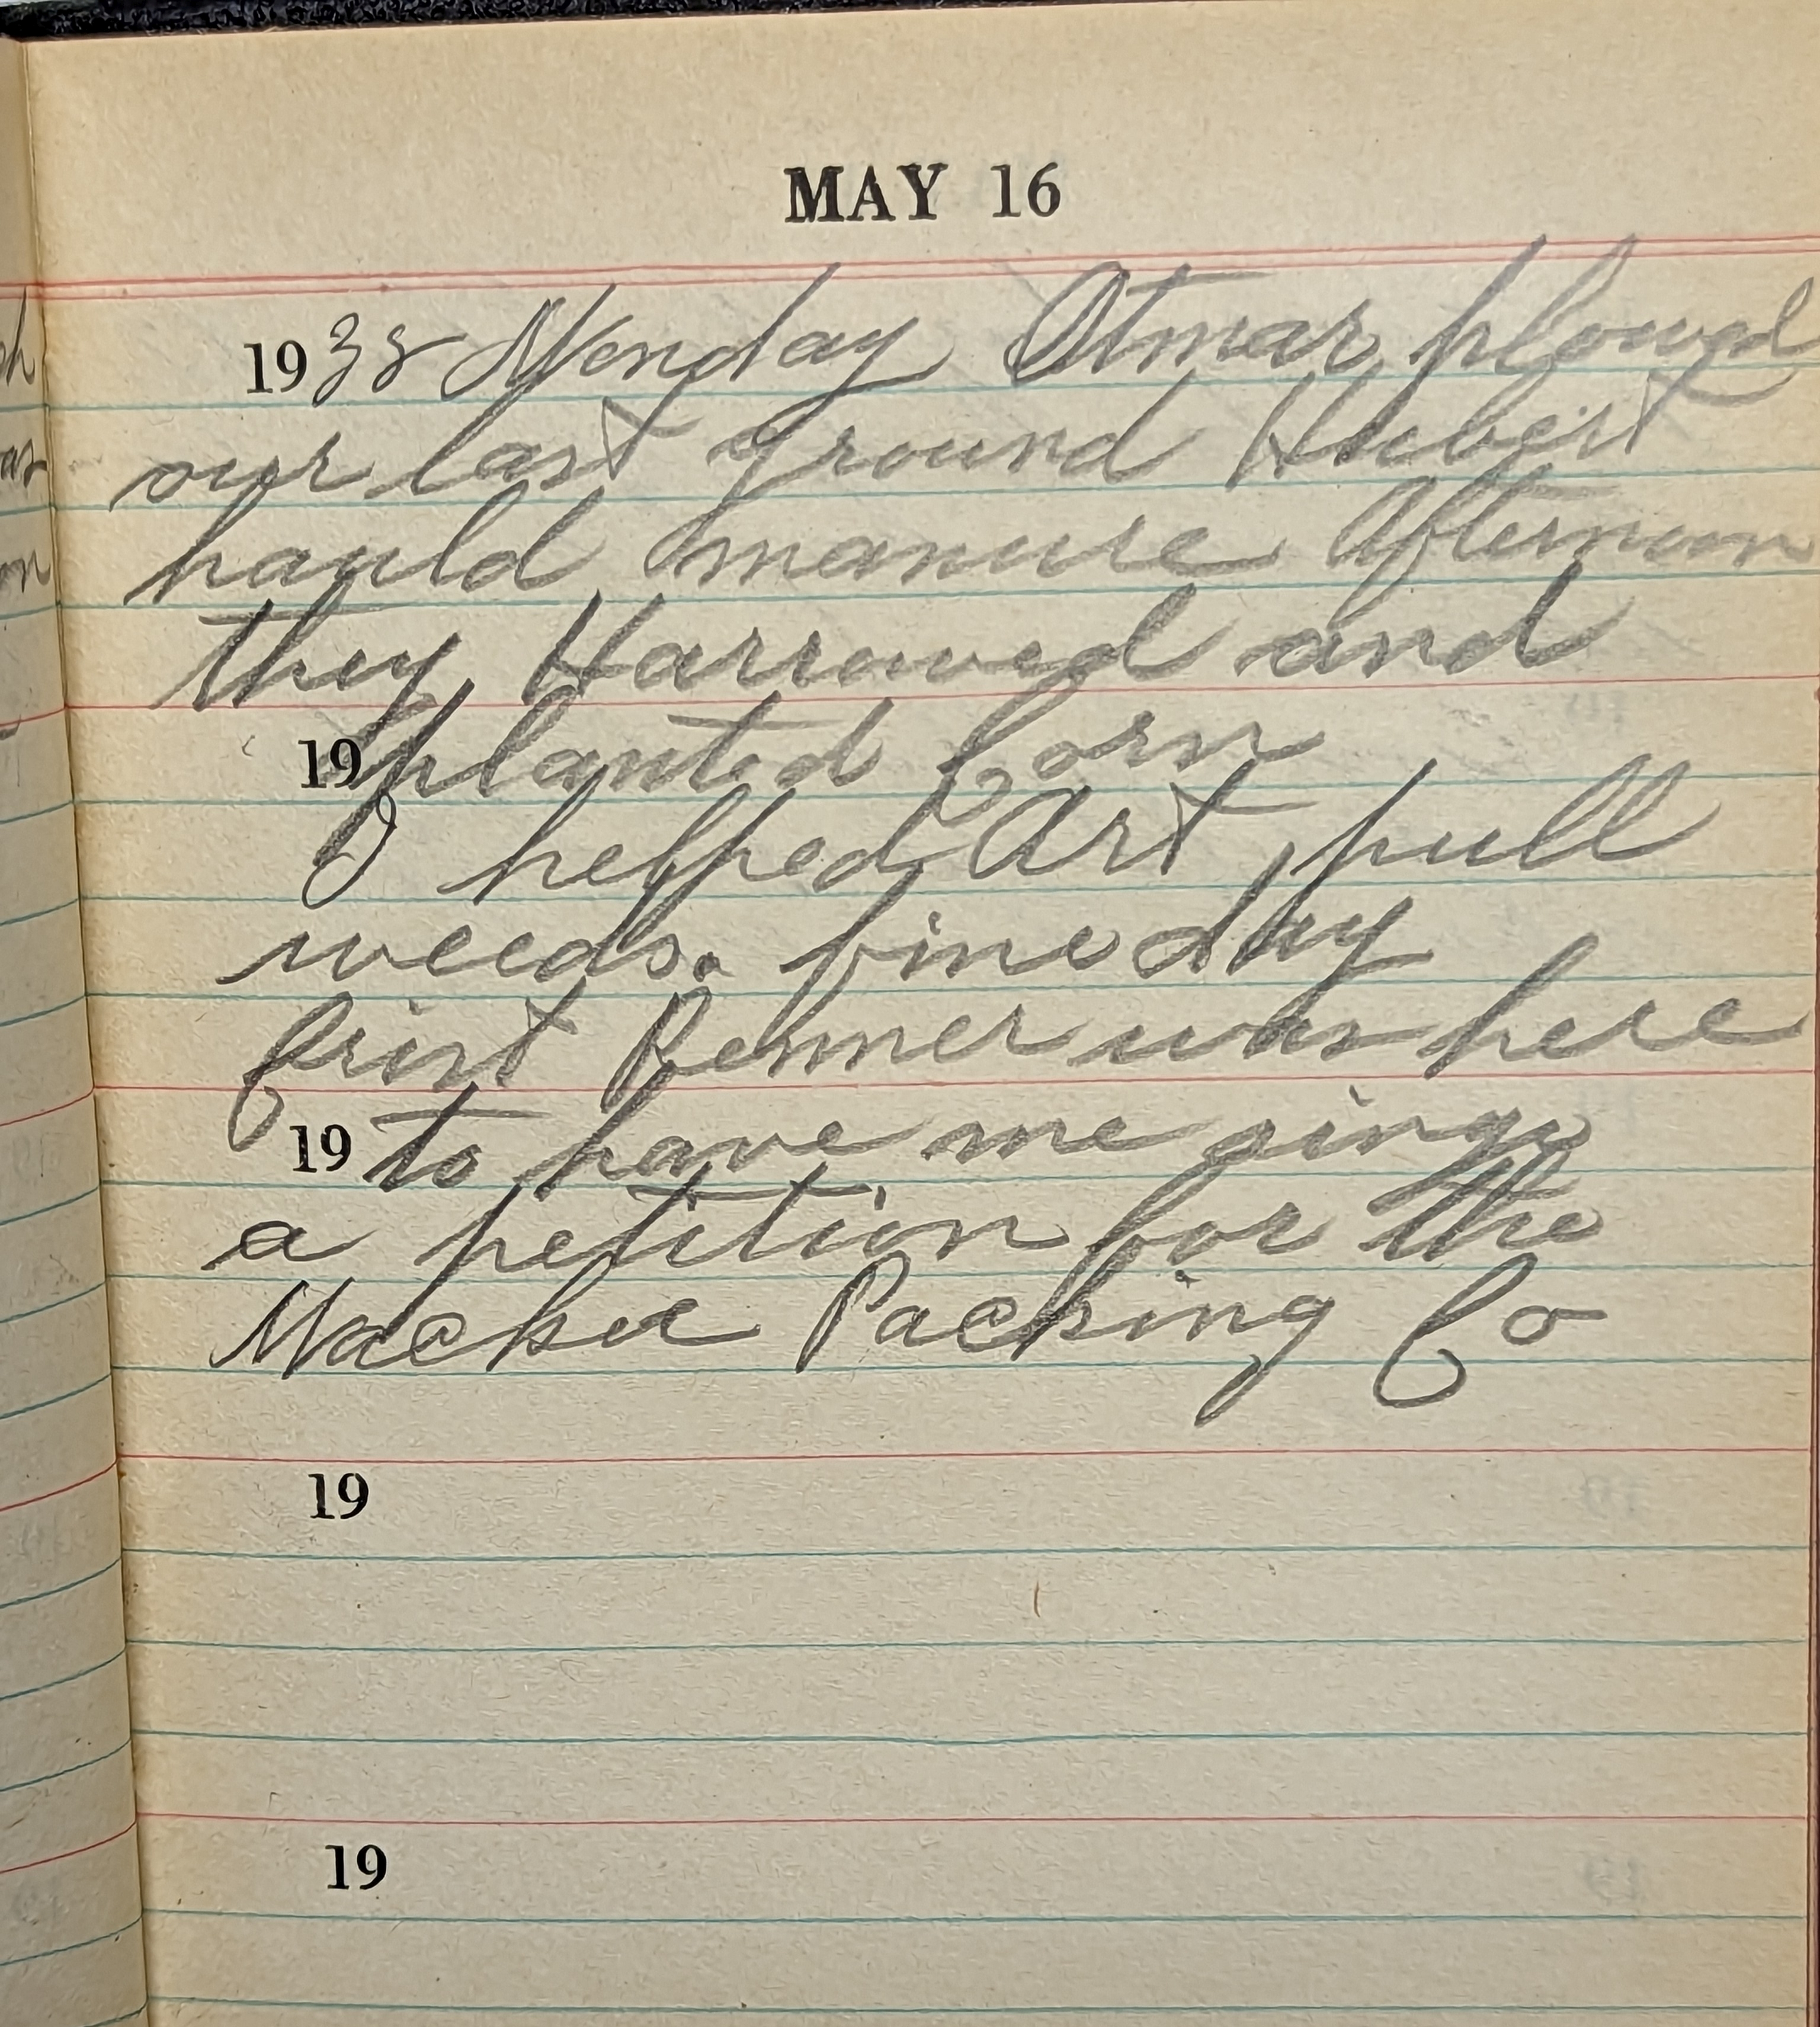 MAY 16
1938 Monday Otmar plowed
our last ground Hubert
hauld manure Afternoon
they Harrowed and
19 planted Corn
I helped Art pull
weeds. fine day
Crist Renner was here
19 to have me singe
a petition for the
Packing Co
19
19